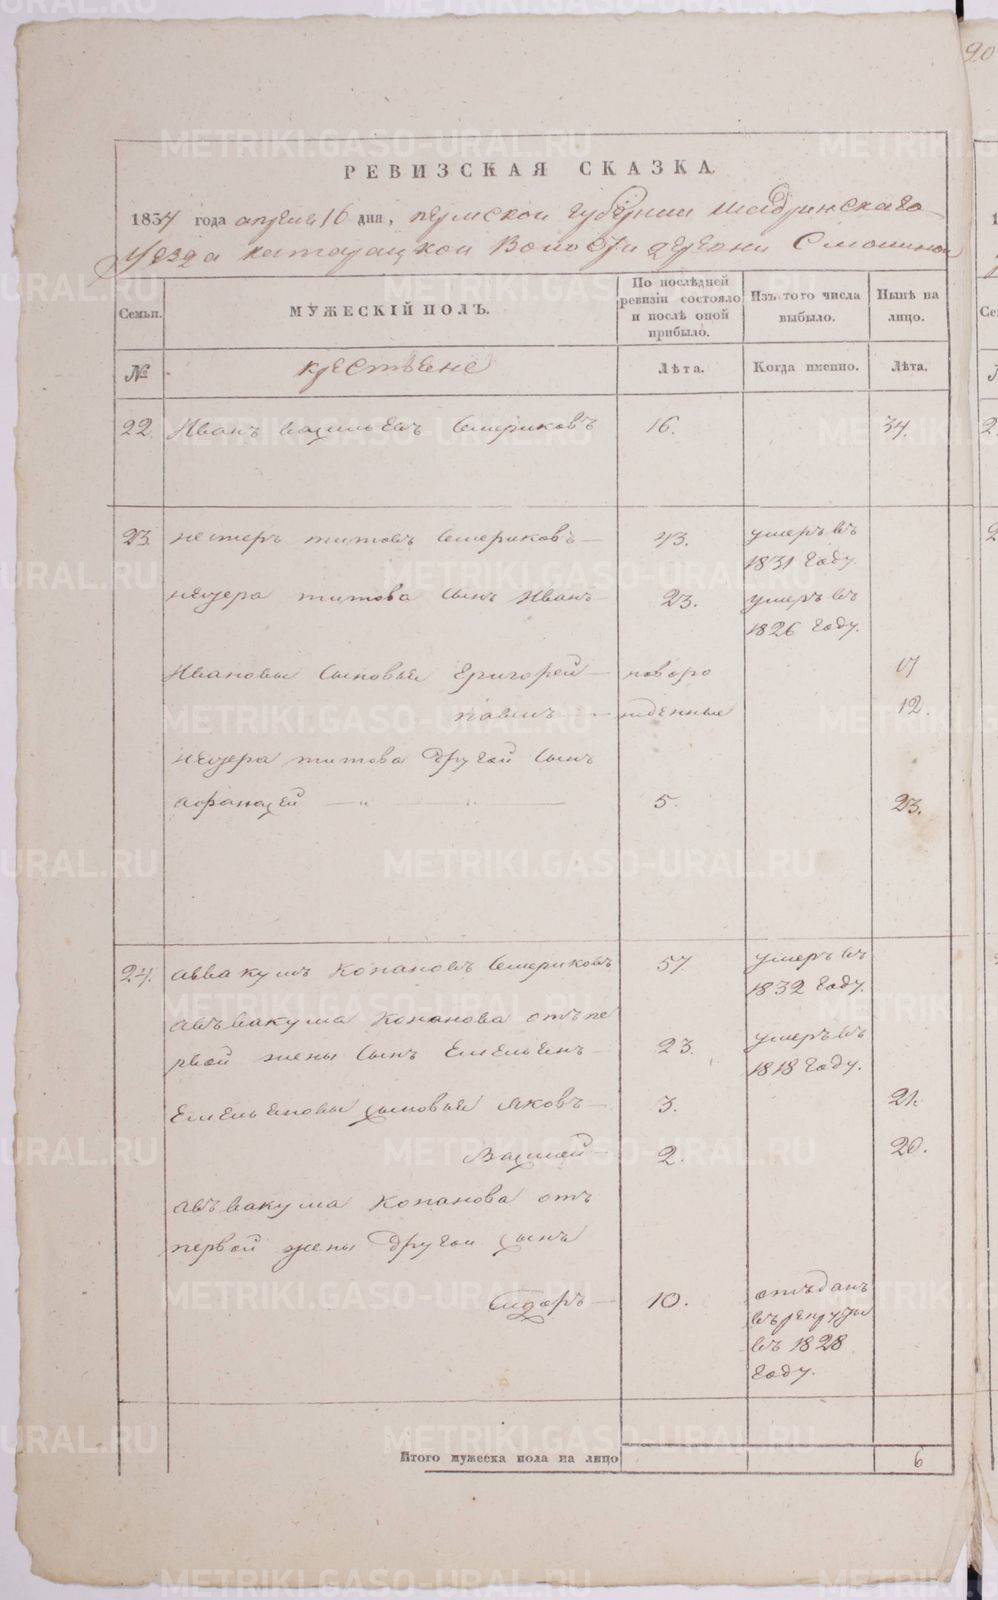 РЕВИЗСКАЯ СКАЗКА.
1834 года апреля 16 дня, пермской губернии шадринскаго
уезда катайцкой Волости деревни Смолиной
Семьи.
МУЖЕСКІЙ ПОЛЪ.
По послѣдней ревизіи состояло и послѣ оной прибыло.
Изъ того числа выбыло.
Нынѣ на лицо.
№
крестьяне
Лѣта.
Когда именно.
Лѣта.
22. Иванъ васильевъ Семериковъ 16. 34.
23. нестеръ титовъ Семериковъ 43. умеръ въ
1831 году.
нестера титова сынъ Иванъ 23. умеръ въ
1826 году.
Ивановы сыновья Григорей новоро 17
павилъ жденные 12.
нестера титова другой сынъ
афанасей 5. 23.
24. аввакумъ Конановъ Семериковъ 57 умеръ въ
1832 году.
авъвакума Конанова отъ пе
рвой жены сынъ Емельянъ 23. умеръ въ
1818 году.
Емельяновы сыновья яковъ 3. 21.
Василей 2. 20.
авъвакума Конанова отъ
первой жены другой сынъ
Сидоръ 10. отъданъ
въ рекруты
въ 1828
году.
Итого мужеска пола на лицо 6
METRIKI.GASO-URAL.RU